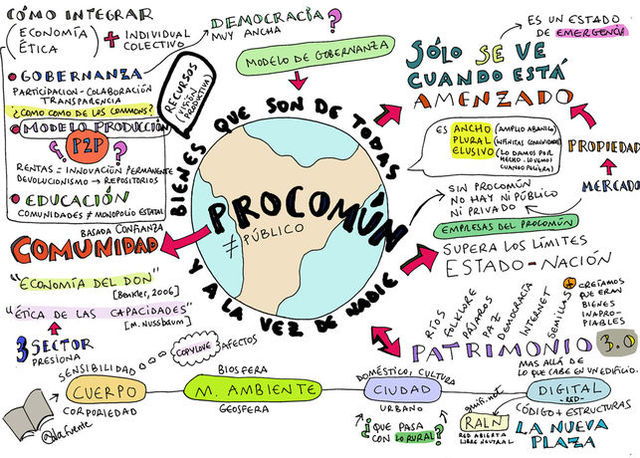 CÓMO INTEGRAR
(ECONOMÍA
ÉTICA) + INDIVIDUAL
COLECTIVO
GOBERNANZA
PARTICIPACION - COLABORACIÓN
TRANSPARENCIA
¿COMO COMO DE LOS COMMONS?
MODELO PRODUCCIÓN
P2P ?
RENTAS = INNOVACIÓN PERMANENTE
DEVOLUCIONISMO → REPOSITORIOS
EDUCACIÓN
COMUNIDADES ≠ MONOPOLIO ESTATAL
DEMOCRACIA?
MUY ANCHA
MODELO DE GOBERNANZA
RECURSOS
(VISIÓN
PRODUCTIVA)
BIENES QUE SON DE TODAS
Y A LA VEZ DE NADIE
PROCOMÚN
≠ PÚBLICO
ES UN ESTADO
DE EMERGENCIA
SÓLO SE VE
CUANDO ESTÁ
AMENZADO
ES ANCHO (AMPLIO ABANICO)
PLURAL (INFINITAS COMUNIDADES)
ELUSIVO (LO DAMOS POR
HECHO - LO VEMOS
CUANDO PELIGRA)
PROPIEDAD
MERCADO
SIN PROCOMÚN
NO HAY NI PÚBLICO
NI PRIVADO
EMPRESAS DEL PROCOMÚN
SUPERA LOS LÍMITES
ESTADO-NACIÓN
BASADA CONFIANZA
COMUNIDAD
"ECONOMÍA DEL DON"
[Benkler, 2006]
"ÉTICA DE LAS CAPACIDADES"
[M. NUSSBAUM]
3 SECTOR
PRESIONA
RÍOS
FOLKLORE
PÁJAROS
PAZ
DEMOCRACIA
INTERNET
SEMILLAS
CREÍAMOS
QUE ERAN
BIENES
INAPRO-
PIABLES
PATRIMONIO 3.0
MAS ALLÁ DE
LO QUE CABE EN UN EDIFICIO.
SENSIBILIDAD
COPYLOVE 3 AFECTOS
CUERPO
CORPORIEDAD
BIOSFERA
M. AMBIENTE
GEOSFERA
DOMÉSTICO, CULTURA
CIUDAD
URBANO
¿QUE PASA
CON LO RURAL?
guifi.net
RALN
RED ABIERTA
LIBRE NEUTRAL
DIGITAL
-RED-
CÓDIGO + ESTRUCTURAS
LA NUEVA
PLAZA
@dlafuente